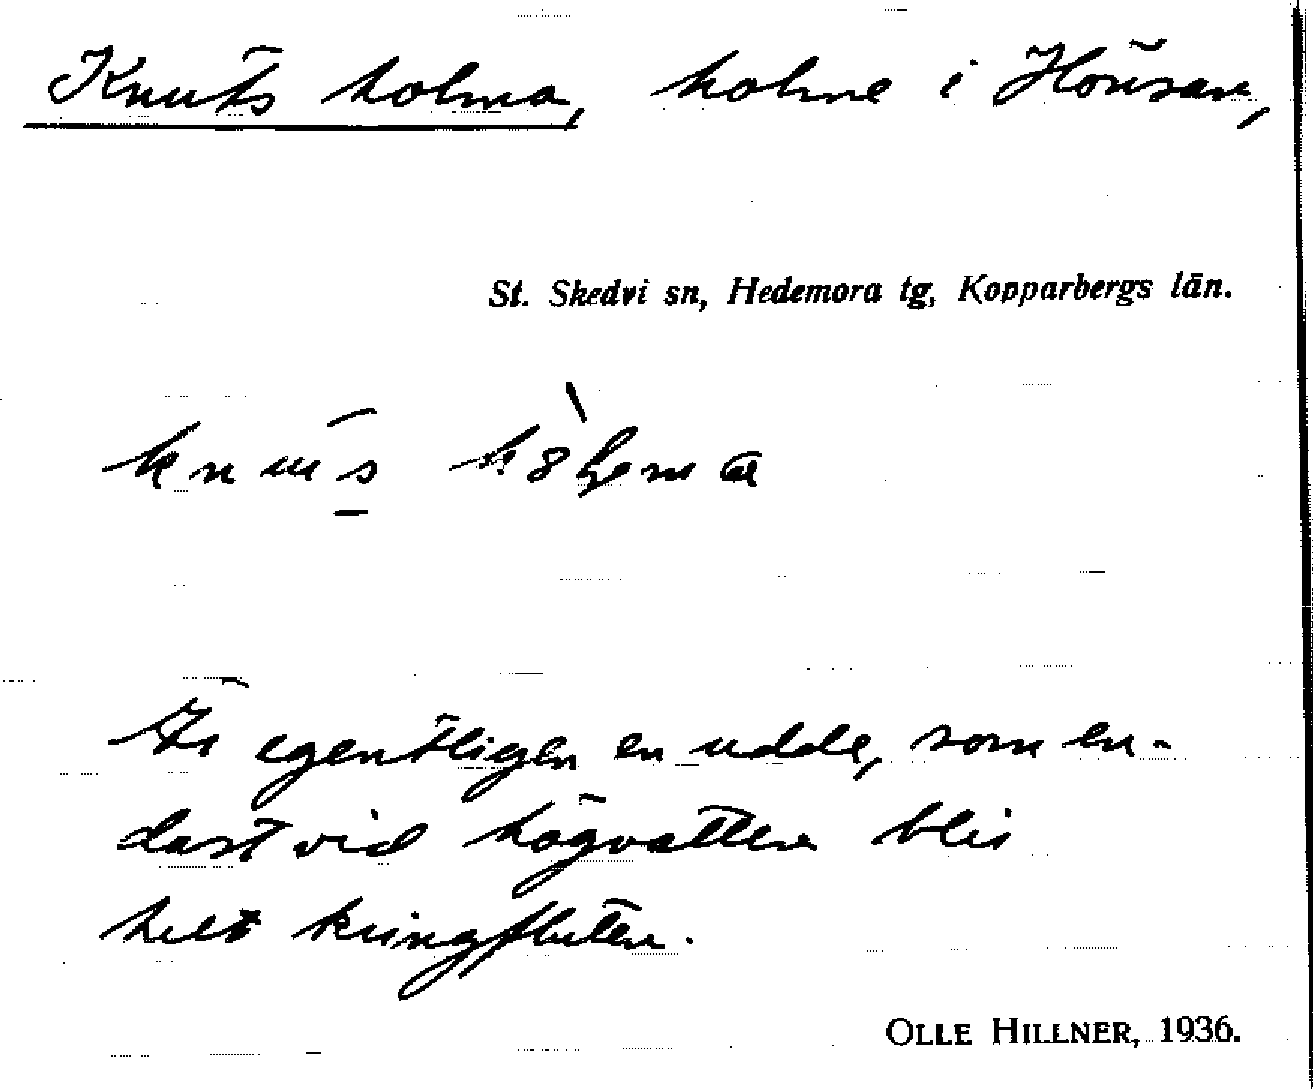 Knuts holma, holme i Hönsan,
St. Skedvi sn, Hedemora tg, Kopparbergs län.
Är egentligen en udde, som en-
dast vid högvatten blir
helt kringfluten.
OLLE HILLNER, 1936.